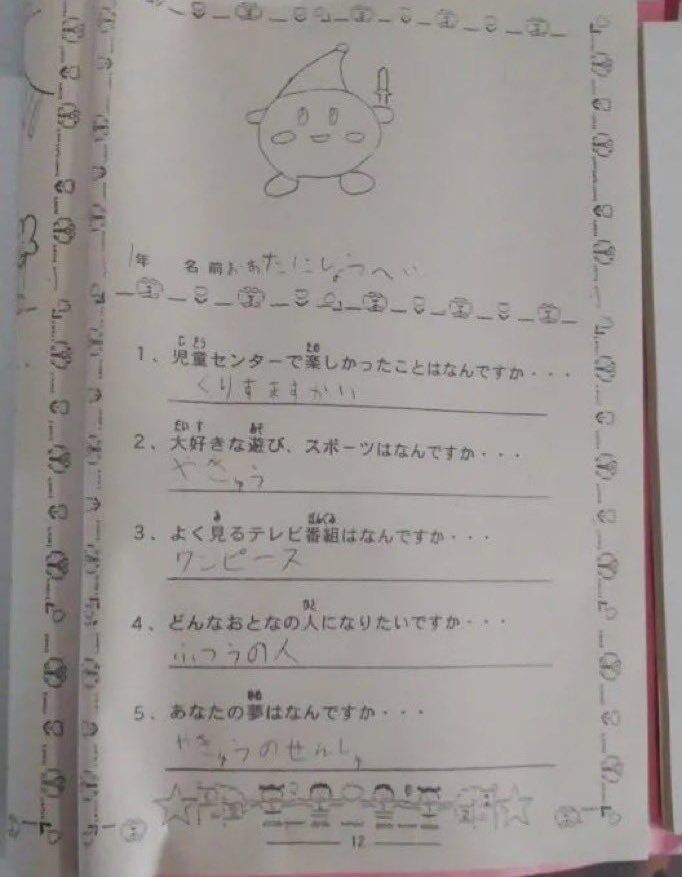 1年 名前 おおたにしょうへい
じどう たの
1、児童センターで楽しかったことはなんですか・・・
くりすますかい
だいす あそ
2、大好きな遊び、スポーツはなんですか・・・
やきゅう
み ばんぐみ
3、よく見るテレビ番組はなんですか・・・
ワンピース
ひと
4、どんなおとなの人になりたいですか・・・
ふつうの人
ゆめ
5、あなたの夢はなんですか・・・
やきゅうのせんしゅ
12